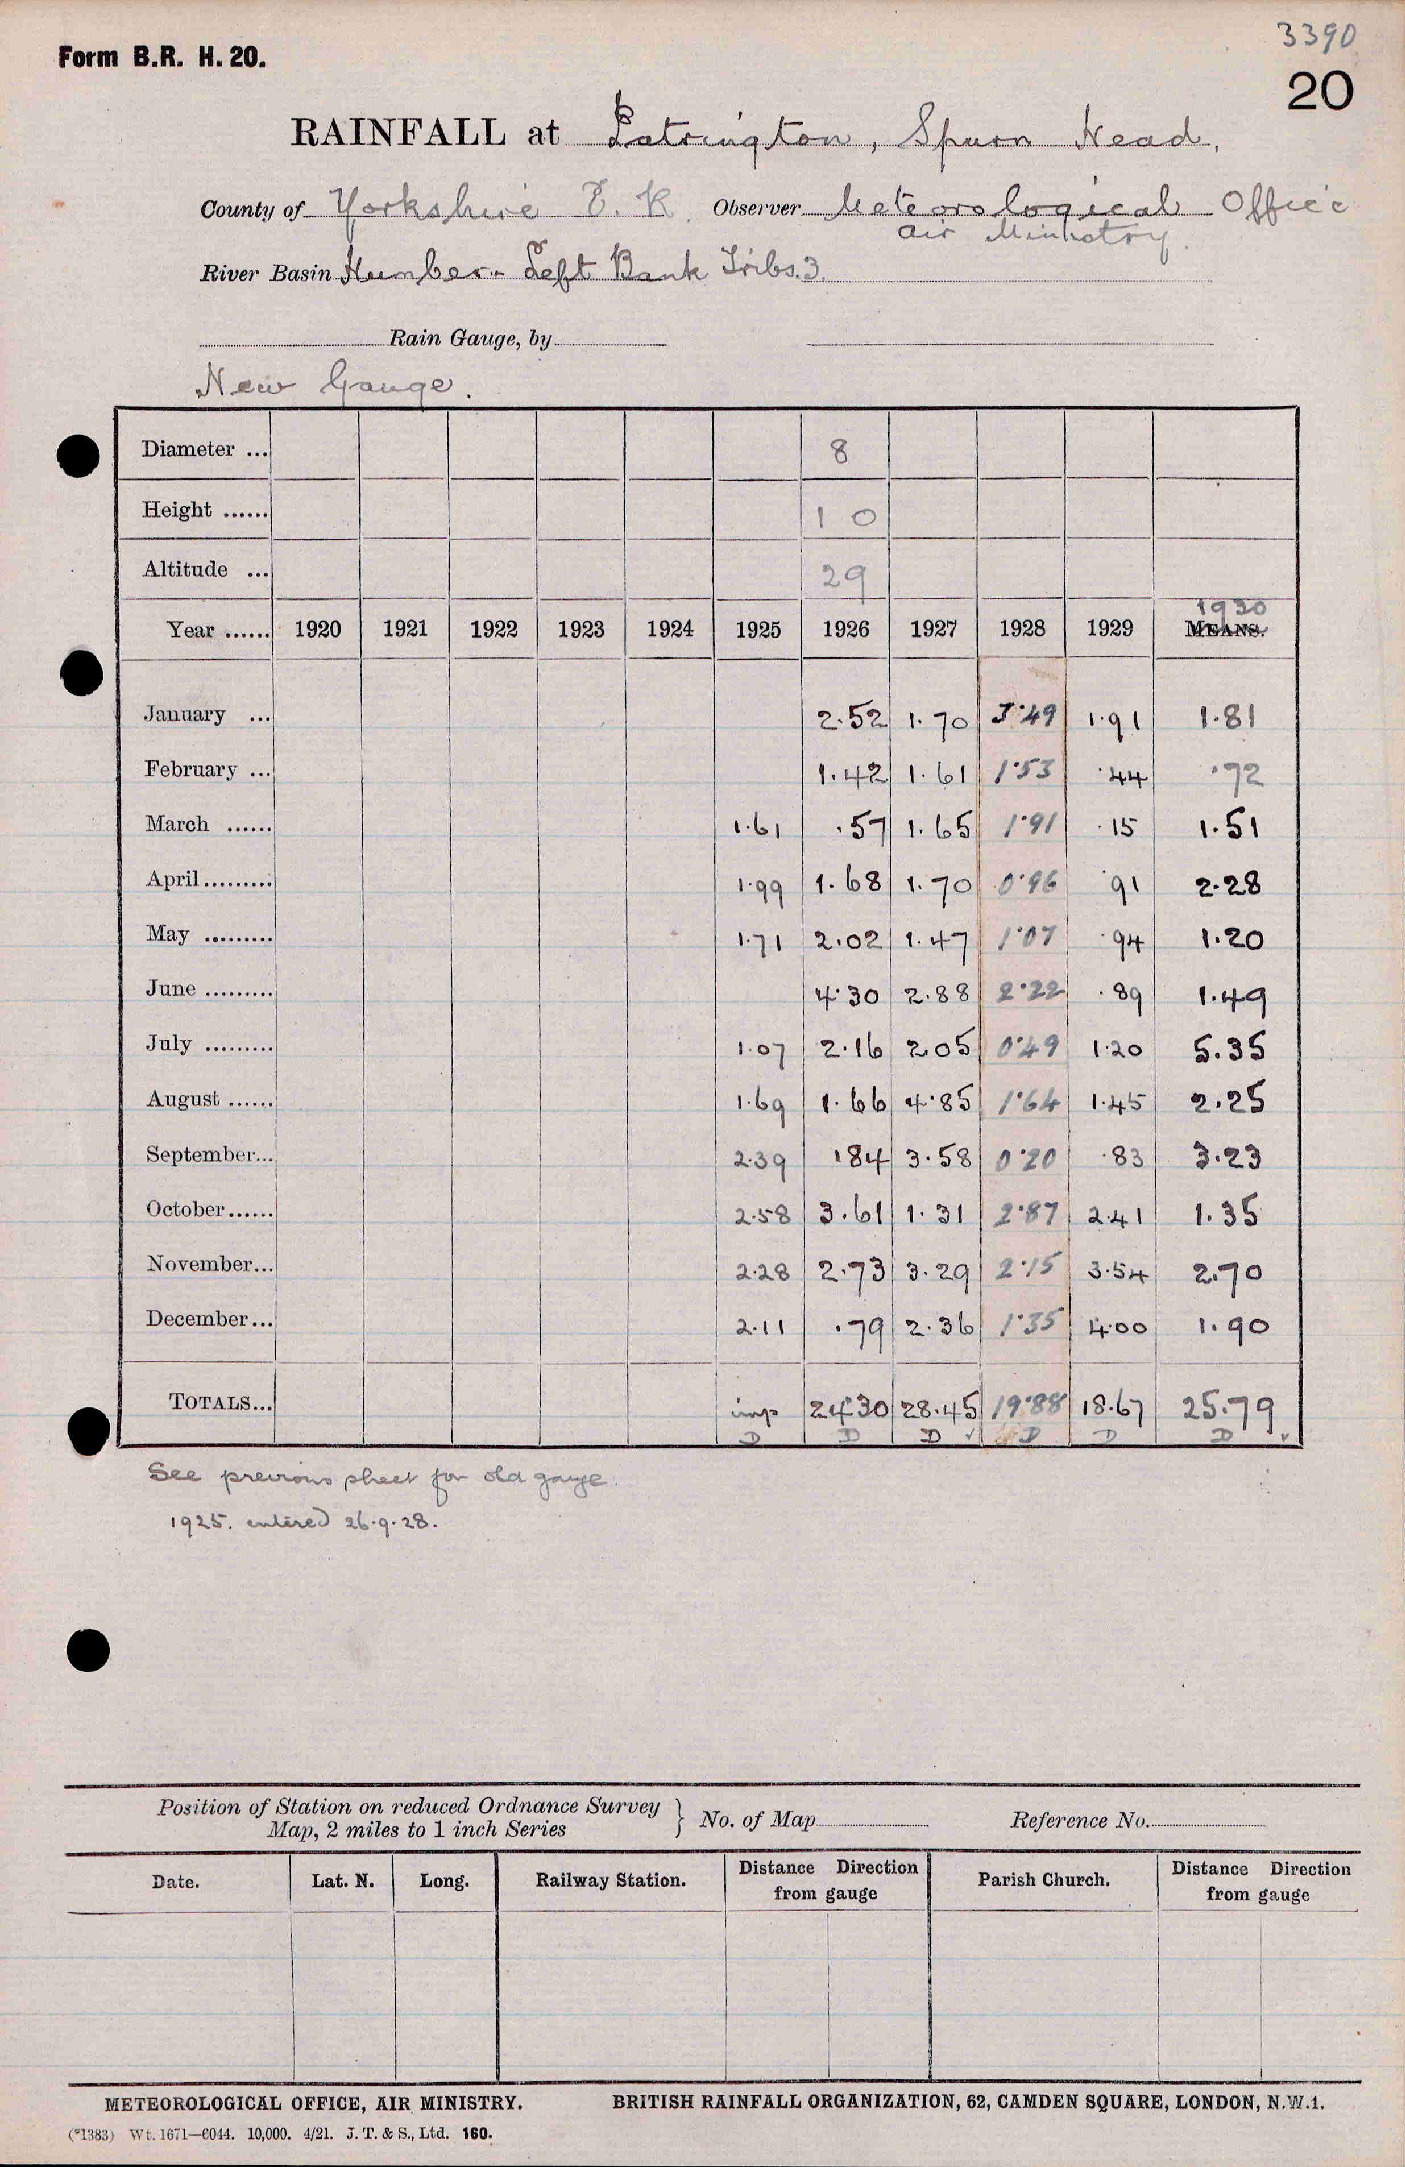 3390
Form B.R. H. 20.
20
RAINFALL at Patrington, Spurn Head,
County of Yorkshire E. R. Observer Meteorological Office
Air Ministry.
River Basin Humber - Left Bank Tribs. 3.
Rain Gauge, by
New Gauge.
Diameter ... 8
Height ...... 1 0
Altitude ... 29
1930
Year ...... 1920 1921 1922 1923 1924 1925 1926 1927 1928 1929 MEANS.
January ... 2.52 1.70 3.49 1.91 1.81
February ... 1.42 1.61 1.53 .44 .72
March ...... 1.61 .57 1.65 1.91 .15 1.51
April ......... 1.99 1.68 1.70 0.96 .91 2.28
May ......... 1.71 2.02 1.47 1.07 .94 1.20
June ......... 4.30 2.88 2.22 .89 1.49
July ......... 1.07 2.16 2.05 0.49 1.20 5.35
August ...... 1.69 1.66 4.85 1.64 1.45 2.25
September... 2.39 .84 3.58 0.20 .83 3.23
October...... 2.58 3.61 1.31 2.87 2.41 1.35
November... 2.28 2.73 3.29 2.15 3.54 2.70
December... 2.11 .79 2.36 1.35 4.00 1.90
TOTALS... imp 24.30 28.45 19.88 18.67 25.79
D D D ✓ D D D ✓
See previous sheet for old gauge.
1925. entered 26.9.28.
Position of Station on reduced Ordnance Survey
Map, 2 miles to 1 inch Series } No. of Map Reference No.
Date. Lat. N. Long. Railway Station. Distance Direction from gauge Parish Church. Distance Direction from gauge
METEOROLOGICAL OFFICE, AIR MINISTRY. BRITISH RAINFALL ORGANIZATION, 62, CAMDEN SQUARE, LONDON, N.W.1.
(*1383) Wt. 1671—6044. 10,000. 4/21. J. T. & S., Ltd. 160.